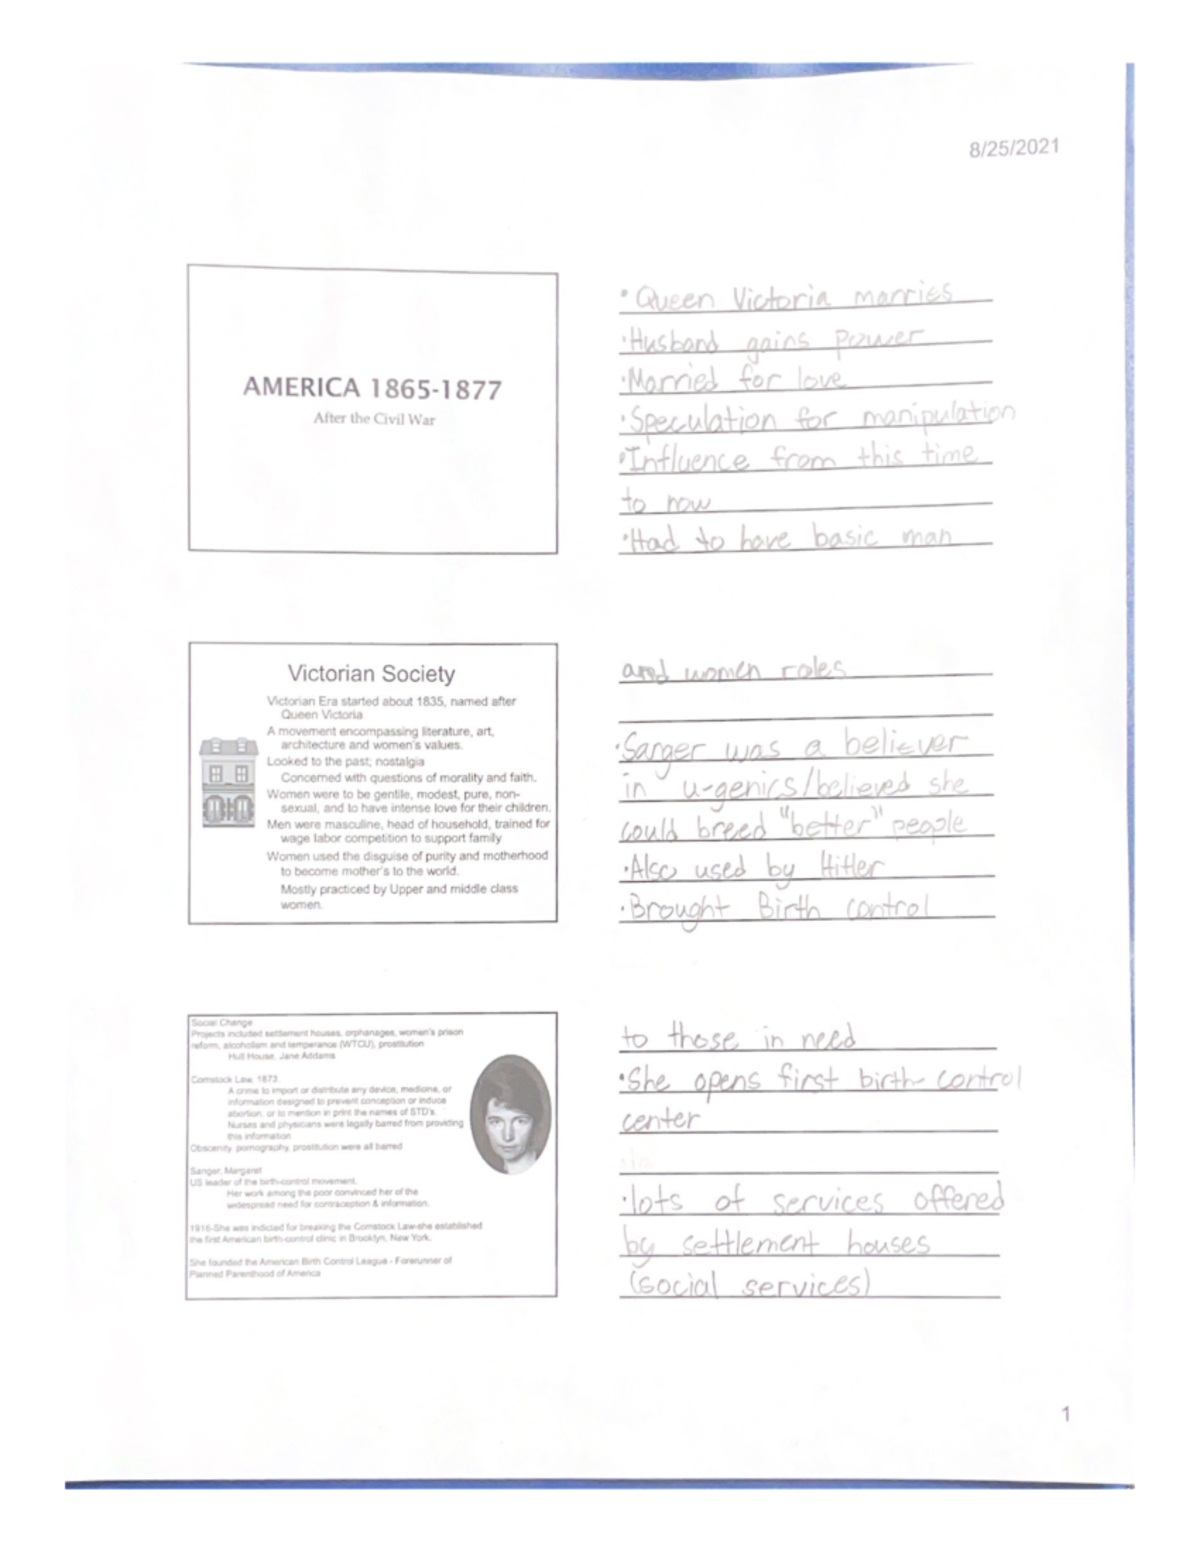 8/25/2021
AMERICA 1865-1877
After the Civil War
• Queen Victoria marries
• Husband gains power
• Married for love
• Speculation for manipulation
• Influence from this time
to now
• Had to have basic man
Victorian Society
Victorian Era started about 1835, named after
Queen Victoria
A movement encompassing literature, art,
architecture and women's values.
Looked to the past; nostalgia
Concerned with questions of morality and faith.
Women were to be gentile, modest, pure, non-
sexual, and to have intense love for their children.
Men were masculine, head of household, trained for
wage labor competition to support family
Women used the disguise of purity and motherhood
to become mother's to the world.
Mostly practiced by Upper and middle class
women.
and women roles
• Sanger was a believer
in u-genics/believed she
could breed "better" people
• Also used by Hitler
• Brought Birth control
Social Change
Projects included settlement houses, orphanages, women's prison
reform, alcoholism and temperance (WTCU), prostitution
Hull House, Jane Addams
Comstock Law, 1873.
A crime to import or distribute any device, medicine, or
information designed to prevent conception or induce
abortion, or to mention in print the names of STD's.
Nurses and physicians were legally barred from providing
this information
Obscenity, pornography, prostitution were all barred
Sanger, Margaret
US leader of the birth-control movement.
Her work among the poor convinced her of the
widespread need for contraception & information.
1916-She was indicted for breaking the Comstock Law-she established
the first American birth-control clinic in Brooklyn, New York.
She founded the American Birth Control League - Forerunner of
Planned Parenthood of America
to those in need
• She opens first birth control
center
• lots of services offered
by settlement houses
(social services)
1